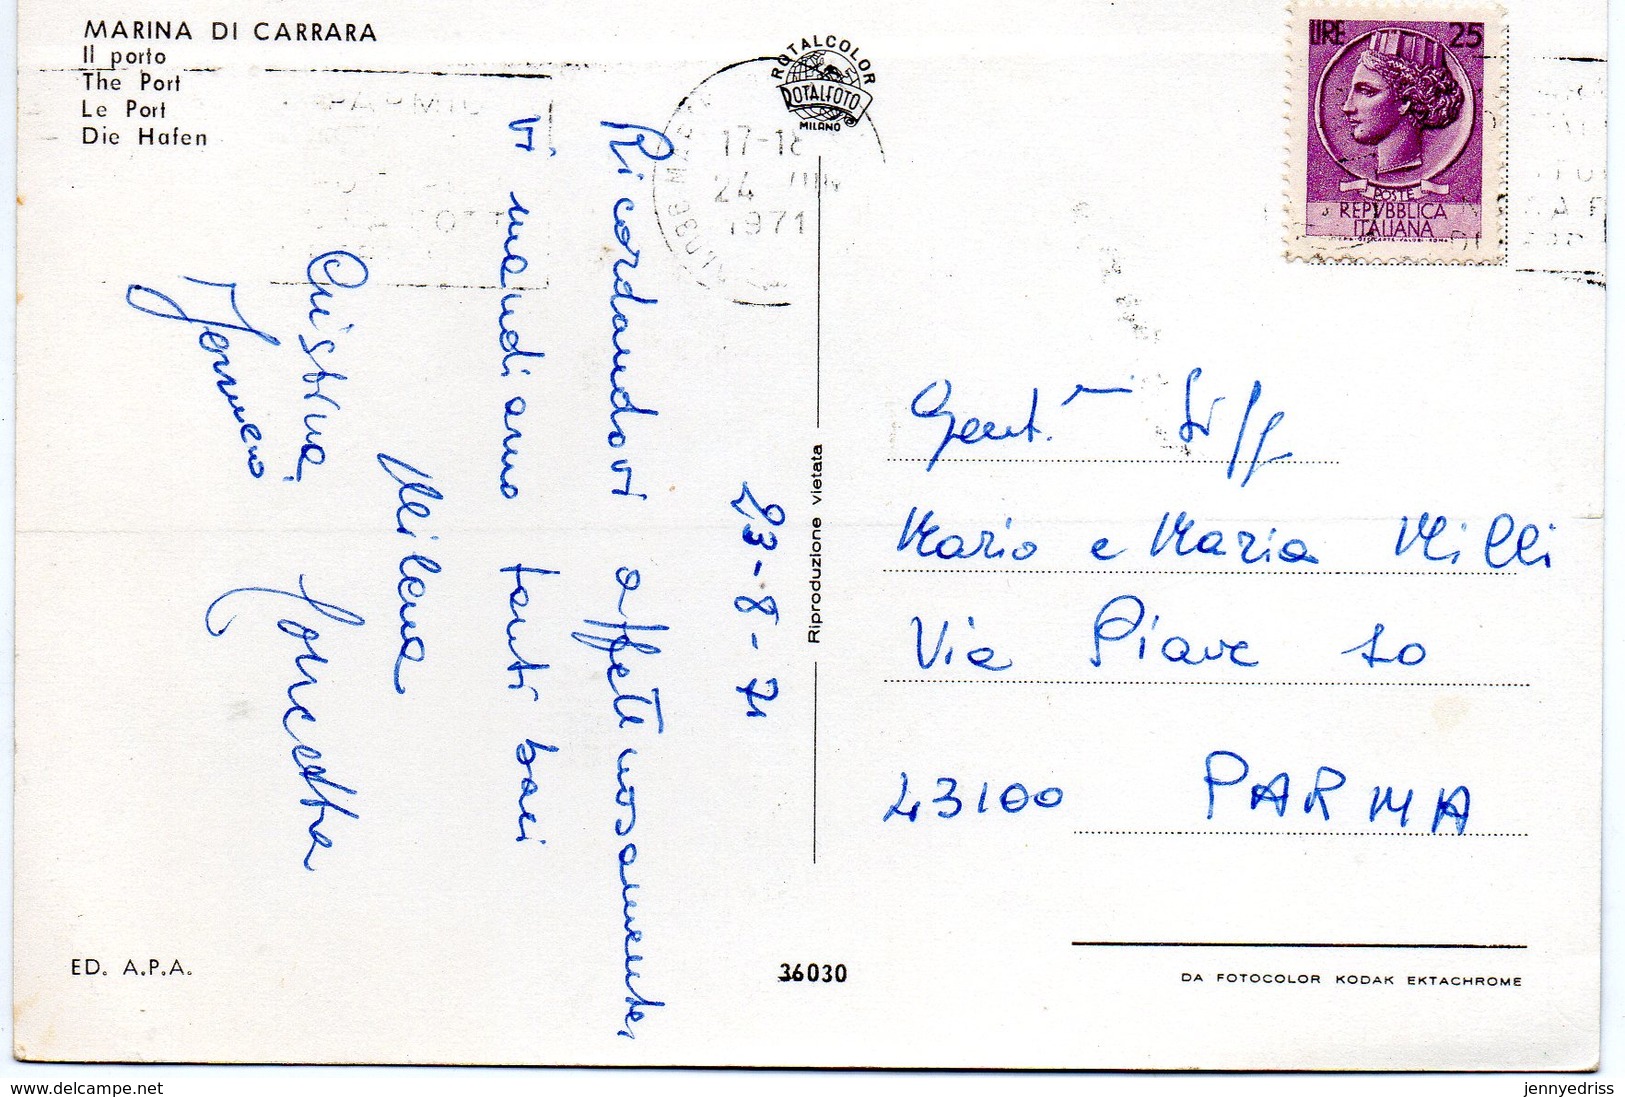 MARINA DI CARRARA
Il porto
The Port
Le Port
Die Hafen
ROTALCOLOR
ROTALFOTO
MILANO
17-18
24
1971
LIRE 25
POSTE
REPVBBLICA
ITALIANA
23-8-71
Ricordandovi affettuosamente,
vi mandiamo tanti baci
Milena
Cristina,
Gent.mi Sigg
Mario e Maria Milli
Via Piave 10
43100 PARMA
Riproduzione vietata
ED. A.P.A.
36030
DA FOTOCOLOR KODAK EKTACHROME
delcampe.net
jennyedriss